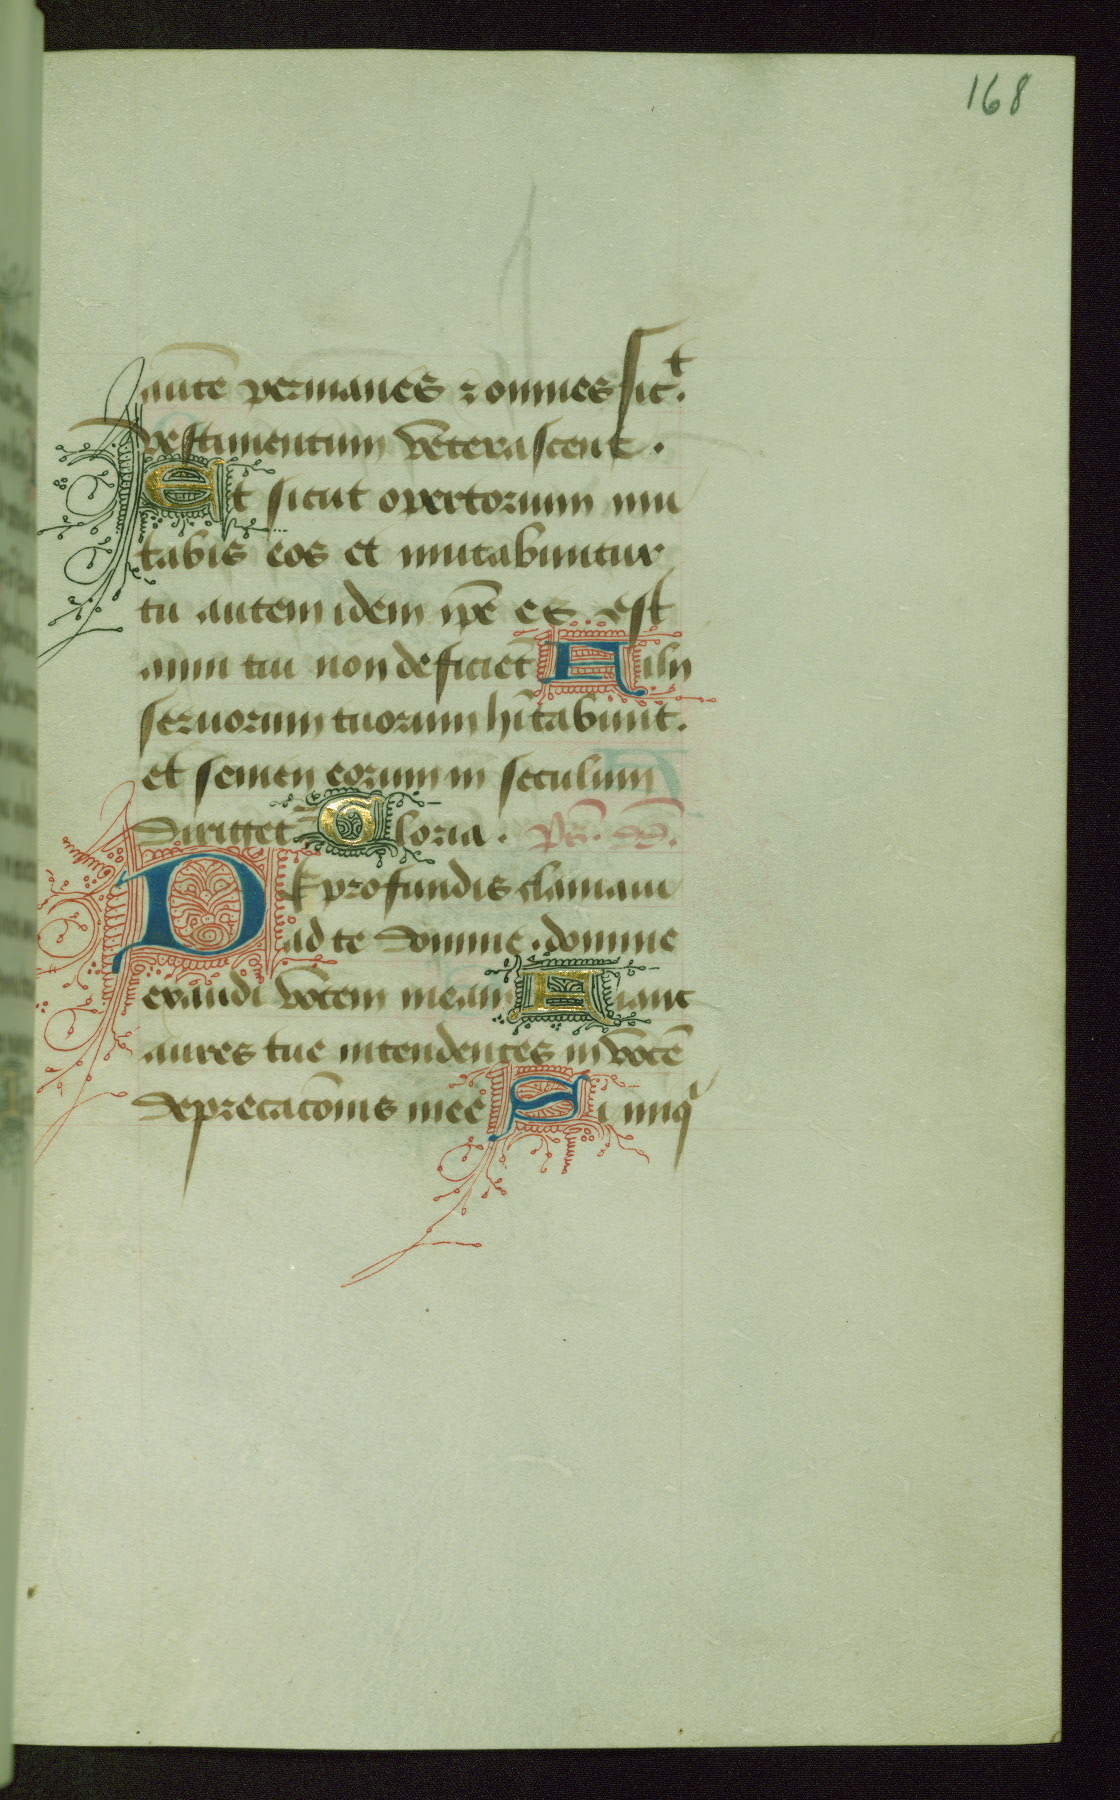 168
autē permanes ⁊ omnes sict
vestimentum veterascent.
Et sicut opertorium mu
tabis eos et mutabuntur
tu autem idem ip̄e es et
anni tui non deficiēt Filii
seruorum tuorum hītabunt.
et semen eorum in seculum
dirigetr̄ Gloria. ps̄. dd̄.
De profundis clamaui
ad te domine. domine
exaudi vocem meam Fiant
aures tue intendentes in vocē
deprecacōnis mee Si iniqͥ